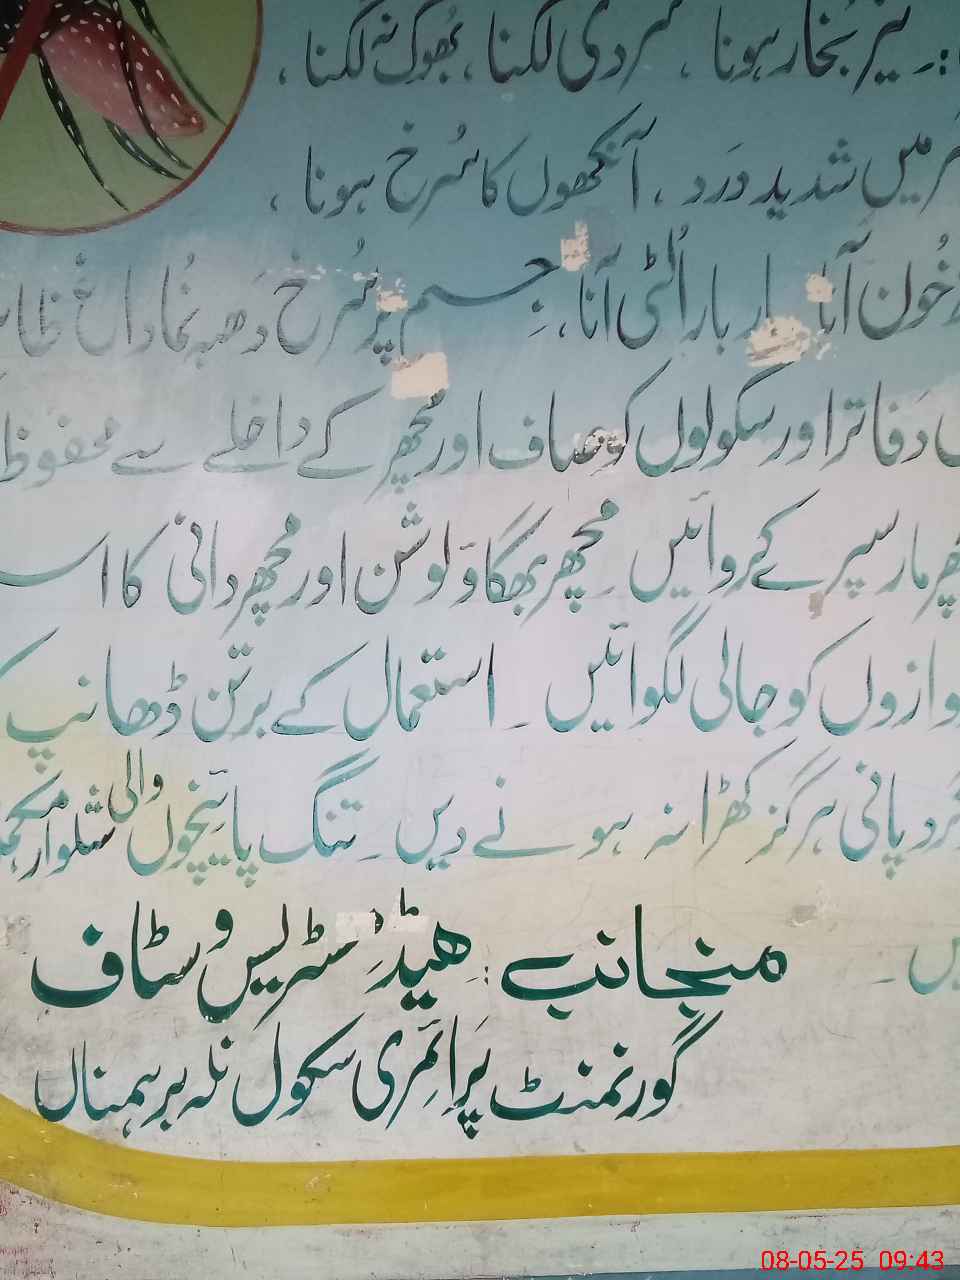 : تیز بُخار ہونا ، سردی لگنا ، بھوک نہ لگنا ،
میں شدید دَرد ، آنکھوں کا سُرخ ہونا ،
خُون آنا بار بار اُلٹی آنا ، جِسم پر سُرخ دَھبہ نُما داغ
دَفاتر اور سکولوں کو صاف اور مچھر کے داخلے سے محفوظ
مار سپرے کروائیں ۔ مچھر بھگاوَ لوشن اور مچھر دانی کا
کو جالی لگوائیں ۔ استعمال کے برتن ڈھانپ
پانی ہرگز کھڑا نہ ہونے دیں ۔ تنگ پائینچوں والی شلوار
۔
منجانب : ہیڈمسٹریس و سٹاف
گورنمنٹ پَرائمری سکول نلہ برہمناں
08-05-25 09:43